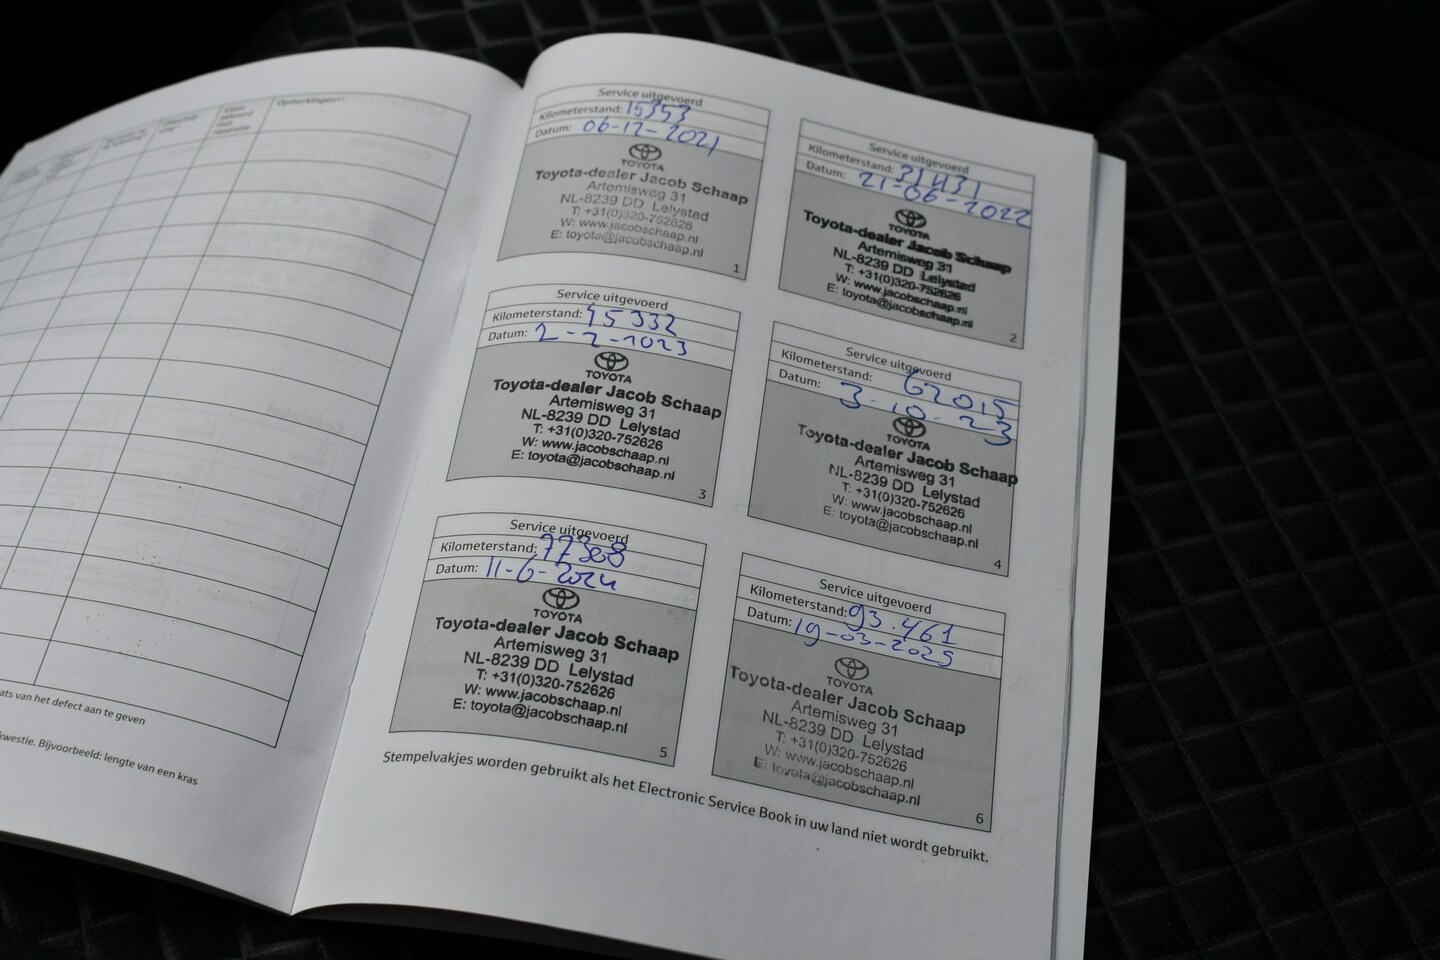 Opmerkingen
ats van het defect aan te geven
kwestie. Bijvoorbeeld: lengte van een kras
Service uitgevoerd
Kilometerstand: 15353
Datum: 06-12-2021
TOYOTA
Toyota-dealer Jacob Schaap
Artemisweg 31
NL-8239 DD Lelystad
T: +31(0)320-752626
W: www.jacobschaap.nl
E: toyota@jacobschaap.nl
1
Service uitgevoerd
Kilometerstand: 31431
Datum: 21-06-2022
TOYOTA
Toyota-dealer Jacob Schaap
Artemisweg 31
NL-8239 DD Lelystad
T: +31(0)320-752626
W: www.jacobschaap.nl
E: toyota@jacobschaap.nl
2
Service uitgevoerd
Kilometerstand: 45332
Datum: 2-2-2023
TOYOTA
Toyota-dealer Jacob Schaap
Artemisweg 31
NL-8239 DD Lelystad
T: +31(0)320-752626
W: www.jacobschaap.nl
E: toyota@jacobschaap.nl
3
Service uitgevoerd
Kilometerstand: 62015
Datum: 3-10-23
TOYOTA
Toyota-dealer Jacob Schaap
Artemisweg 31
NL-8239 DD Lelystad
T: +31(0)320-752626
W: www.jacobschaap.nl
E: toyota@jacobschaap.nl
4
Service uitgevoerd
Kilometerstand: 77308
Datum: 11-6-2024
TOYOTA
Toyota-dealer Jacob Schaap
Artemisweg 31
NL-8239 DD Lelystad
T: +31(0)320-752626
W: www.jacobschaap.nl
E: toyota@jacobschaap.nl
5
Service uitgevoerd
Kilometerstand: 93.461
Datum: 19-03-2025
TOYOTA
Toyota-dealer Jacob Schaap
Artemisweg 31
NL-8239 DD Lelystad
T: +31(0)320-752626
W: www.jacobschaap.nl
E: toyota@jacobschaap.nl
6
Stempelvakjes worden gebruikt als het Electronic Service Book in uw land niet wordt gebruikt.